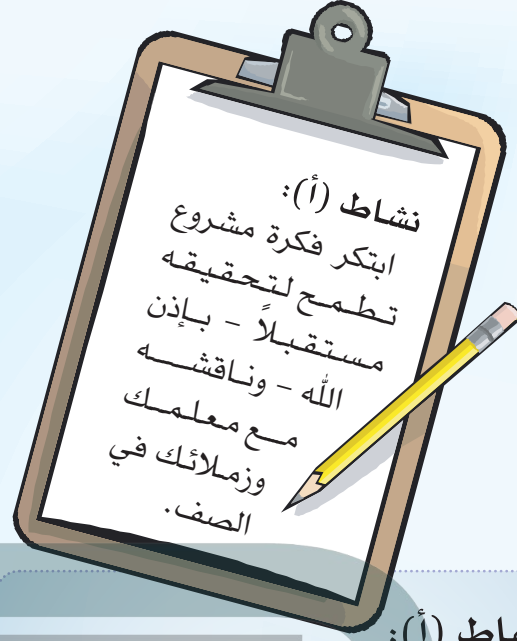 نشاط (أ):
ابتكر فكرة مشروع
تطمح لتحقيقه
مستقبلاً – بإذن
الله – وناقشه
مع معلمك
وزملائك في
الصف.
(أ):